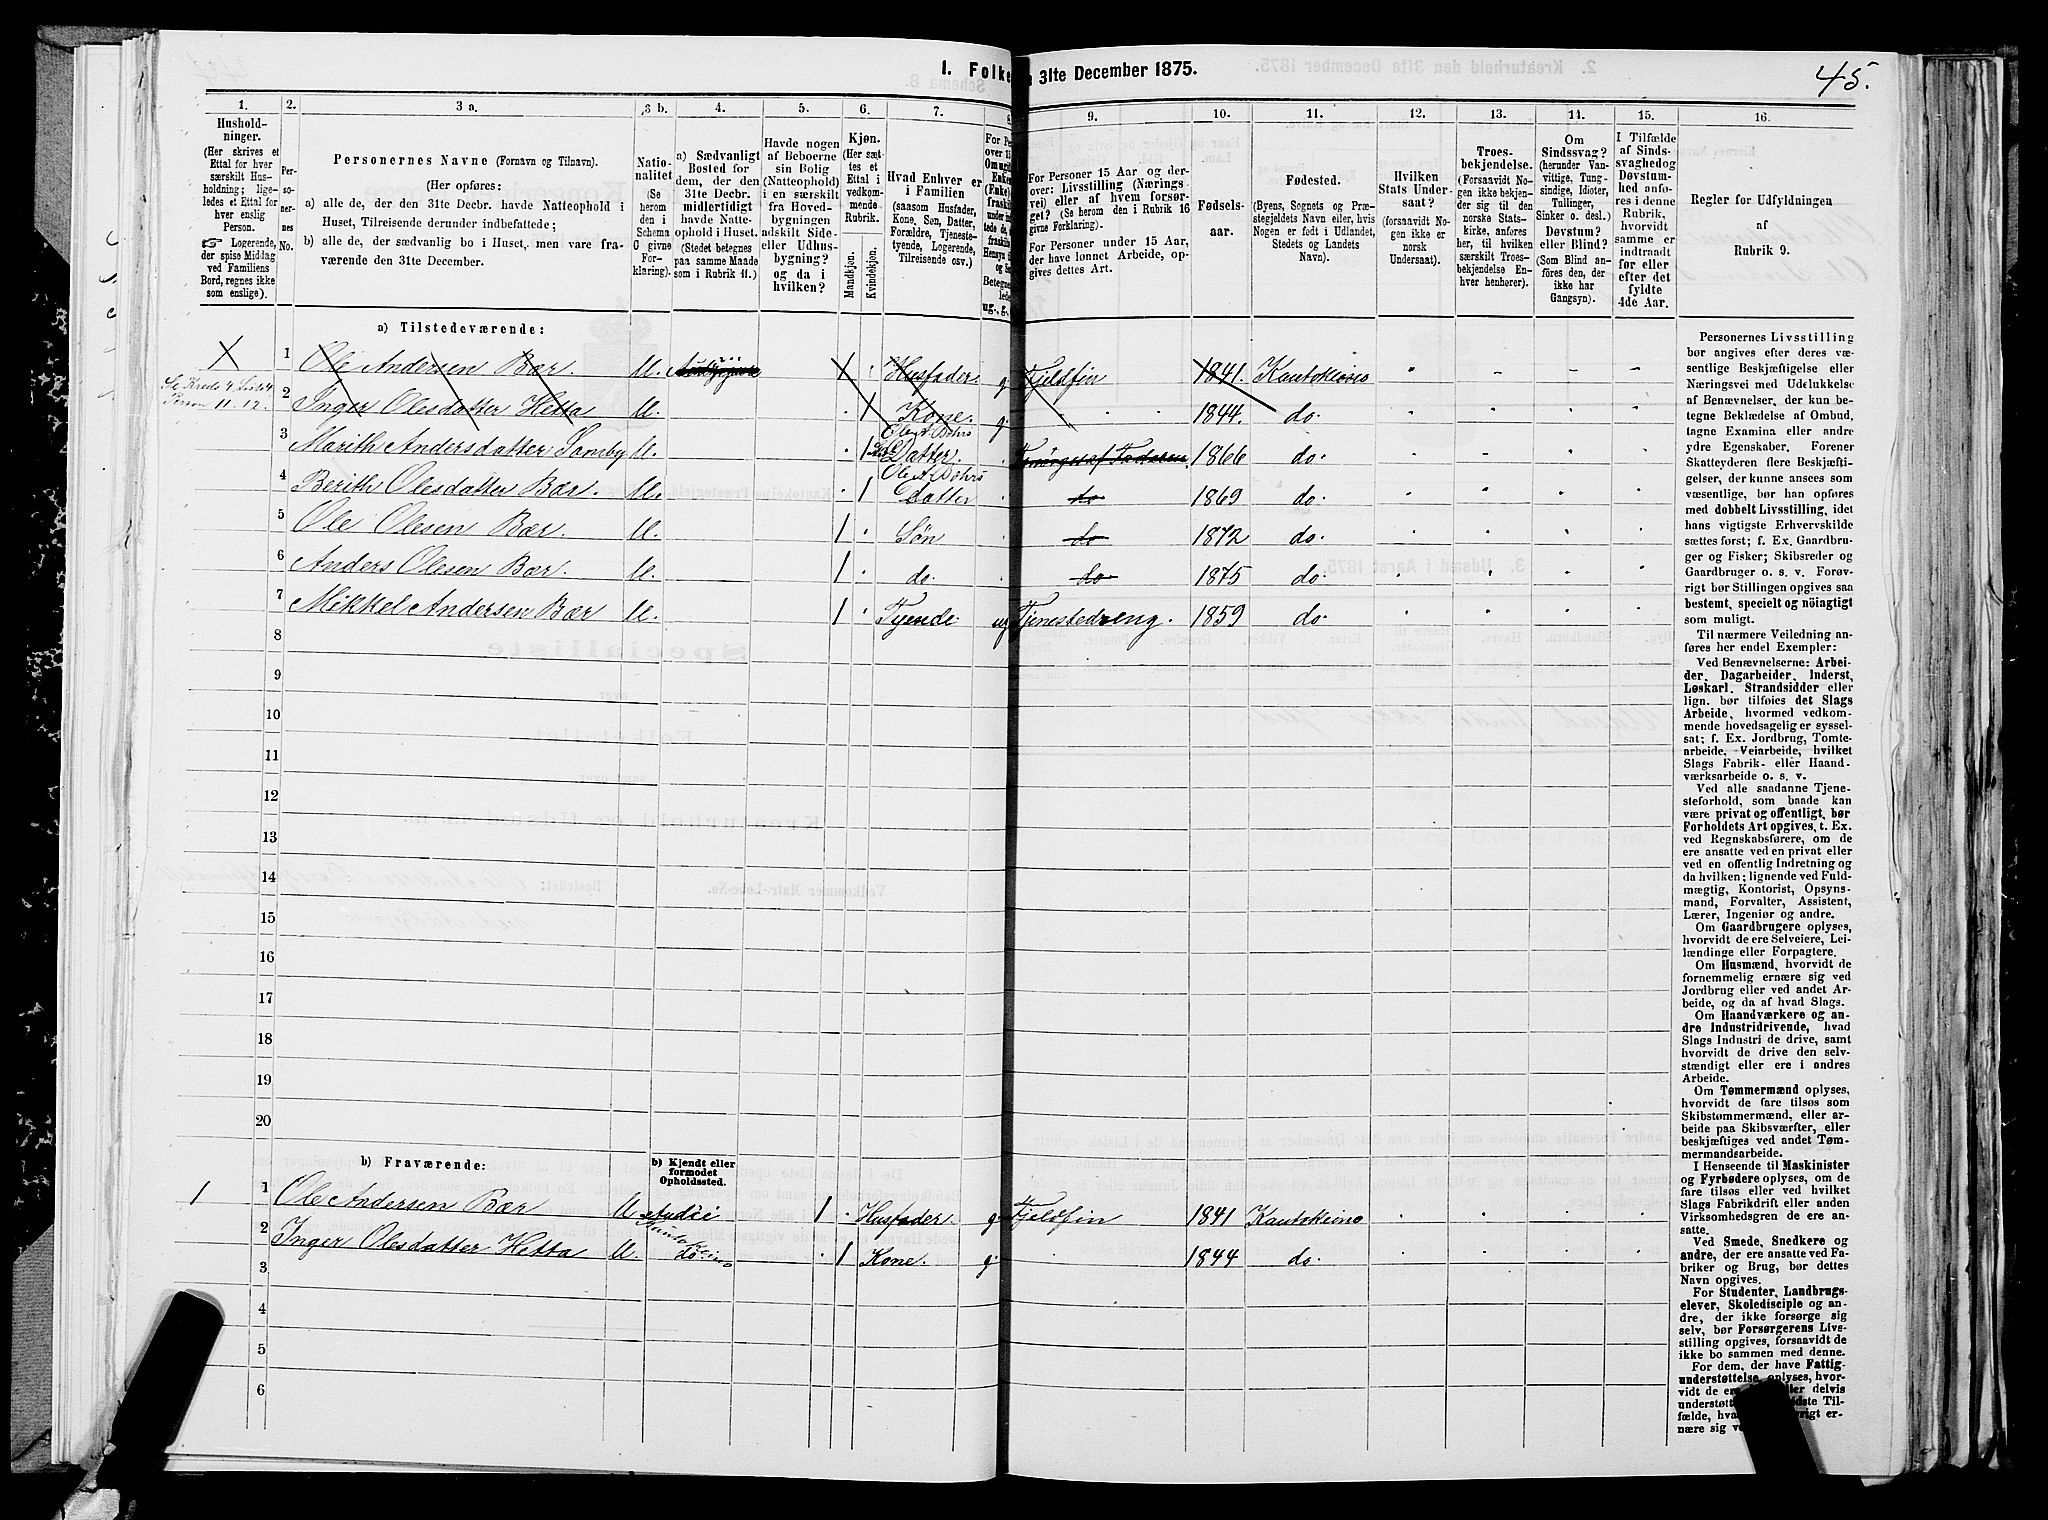 1. Folke 31te December 1875.
45.
1. 2. 3 a. 3 b. 4. 5. 6. 7. 8. 9. 10. 11. 12. 13. 14. 15. 16.
Hushold-
ninger.
(Her skrives et
Ettal for hver
særskilt Hus-
holdning; lige-
ledes et Ettal for
hver enslig
Person.
☞ Logerende,
der spise Middag
ved Familiens
Bord, regnes ikke
som enslige).
Per-
so-
ner-
nes
No.
Personernes Navne (Fornavn og Tilnavn).
(Her opføres:
a) alle de, der den 31te Decbr. havde Natteophold i
Huset, Tilreisende derunder indbefattede;
b) alle de, der sædvanlig bo i Huset, men vare fra-
værende den 31te December.
Natio-
nalitet
(Se
herom
den i
Schema
C givne
For-
klaring).
a) Sædvanligt
Bosted for
dem, der den
31te Decbr.
midlertidigt
havde Natte-
ophold i Huset.
(Stedet betegnes
paa samme Maade
som i Rubrik 11.)
Havde nogen
af Beboerne
sin Bolig
(Natteophold)
i en særskilt
fra Hoved-
bygningen
adskilt Side-
eller Udhus-
bygning?
og da i
hvilken?
Kjøn.
(Her sæt-
tes et
Ettal i
vedkom-
mende
Rubrik.
Mandkjøn.
Kvindekjøn.
Hvad Enhver er
i Familien
(saasom Husfader,
Kone, Søn, Datter,
Forældre, Tjeneste-
tyende, Logerende,
Tilreisende osv.)
For Personer 15 Aar og der-
over: Livsstilling (Nærings-
vei) eller af hvem forsør-
get? (Se herom den i Rubrik 16
givne Forklaring).
For Personer under 15 Aar,
der have lønnet Arbeide, op-
gives dettes Art.
Fødsels-
aar.
Fødested.
(Byens, Sognets og Præ-
stegjeldets Navn eller, hvis
Nogen er født i Udlandet,
Stedets og Landets
Navn).
Hvilken
Stats Under-
saat?
(forsaavidt No-
gen ikke er
norsk
Undersaat).
Troes-
bekjendelse.
(Forsaavidt No-
gen ikke bekjen-
der sig til den
norske Stats-
kirke, anføres
her, til hvilken
særskilt Troes-
bekjendelse En-
hver henhører).
Om
Sindssvag?
(herunder Van-
vittige, Tung-
sindige, Idioter,
Tullinger,
Sinker o. desl.)
Døvstum?
eller Blind?
(Som Blind an-
føres den, der
ikke har
Gangsyn).
I Tilfælde
af Sinds-
svaghed og
Døvstum-
hed anfø-
res i denne
Rubrik,
hvorvidt
samme er
indtraadt
før eller
efter det
fyldte
4de Aar.
Regler for Udfyldningen
af
Rubrik 9.
a) Tilstedeværende:
1 Ole Andersen Bær. Husfader g Fjeldfin 1841. Kautokeino
2 Inger Olesdatter Hetta 1 Kone. g 1844. do.
3 Marith Andersdatter Somby 1 Datter. Forsørges af Faderen 1866 do.
4 Berith Olesdatter Bær. 1 Datter do 1869 do.
5 Ole Olesen Bær. 1 Søn do 1872 do.
6 Anders Olesen Bær. 1 do. do 1875 do.
7 Mikkel Andersen Bær 1 Tyende ug Tjenestedreng. 1859 do.
8
9
10
11
12
13
14
15
16
17
18
19
20
b) Fraværende:
b) Kjendt eller
formodet
Opholdssted.
1 1 Ole Andersen Bær 1 Husfader. g. Fjeldfin 1841 Kautokeino
2 Inger Olesdatter Hetta do 1 Kone. g. 1844 do.
3
4
5
6
Personernes Livsstilling
bør angives efter deres væ-
sentlige Beskjæftigelse eller
Næringsvei med Udelukkelse
af Benævnelser, der kun be-
tegne Beklædelse af Ombud,
tagne Examina eller andre
ydre Egenskaber. Forener
Skatteyderen flere Beskjæfti-
gelser, der kunne ansees som
væsentlige, bør han opføres
med dobbelt Livsstilling, idet
hans vigtigste Erhvervskilde
sættes først; f. Ex. Gaardbru-
ger og Fisker; Skibsreder og
Gaardbruger o. s. v. Forøv-
rigt bør Stillingen opgives saa
bestemt, specielt og nöiagtigt
som muligt.
Til nærmere Veiledning an-
føres her endel Exempler:
Ved Benævnelserne: Arbei-
der, Dagarbeider, Inderst,
Løskarl, Strandsidder eller
lign. bør tilføies det Slags
Arbeide, hvormed vedkom-
mende hovedsagelig er syssel-
sat; f. Ex. Jordbrug, Tomte-
arbeide, Veiarbeide, hvilket
Slags Fabrik- eller Haand-
værksarbeide o. s. v.
Ved alle saadanne Tjene-
steforhold, som baade kan
være privat og offentligt, bør
Forholdets Art opgives, t. Ex.
ved Regnskabsførere, om de
ere ansatte ved en privat eller
ved en offentlig Indretning og
da hvilken; lignende ved Fuld-
mægtig, Kontorist, Opsyns-
mand, Forvalter, Assistent,
Lærer, Ingeniør og andre.
Om Gaardbrugere oplyses,
hvorvidt de ere Selveiere, Lei-
lændinge eller Forpagtere.
Om Husmænd, hvorvidt de
fornemmelig ernære sig ved
Jordbrug eller ved andet Ar-
beide, og da af hvad Slags.
Om Haandværkere og an-
dre Industridrivende, hvad
Slags Industri de drive, samt
hvorvidt de drive den selv-
stændigt eller ere i andres
Arbeide.
Om Tømmermænd oplyses,
hvorvidt de fare tilsøs som
Skibstømmermænd, eller ar-
beide paa Skibsværfter, eller
beskjæftiges ved andet Tøm-
mermandsarbeide.
I Henseende til Maskinister
og Fyrbødere oplyses, om de
fare tilsøs eller ved hvilket
Slags Fabrikdrift eller anden
Virksomhedsgren de ere an-
satte.
Ved Smede, Snedkere og
andre, der ere ansatte ved Fa-
briker og Brug, bør dettes
Navn opgives.
For Studenter, Landbrugs-
elever, Skoledisciple og an-
dre, der ikke forsørge sig
selv, bør Forsørgerens Livs-
stilling opgives, forsaavidt de
ikke bo sammen med denne.
For dem, der have Fattig-
understøttelse, oplyses, hvor-